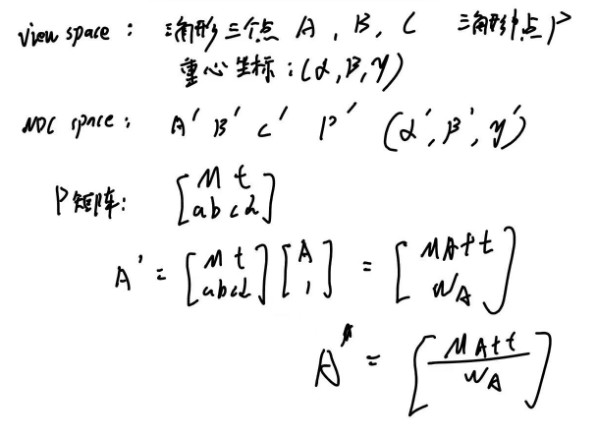 view space: 三角形三个点 A, B, C 三角形中点P
重心坐标:(α,β,γ)
NDC space: A' B' C' P' (α',β',γ')
P矩阵: [M t
abcd]
A' = [M t
abcd] [A
1] = [MA+t
W_A]
A' = [MA+t
W_A]